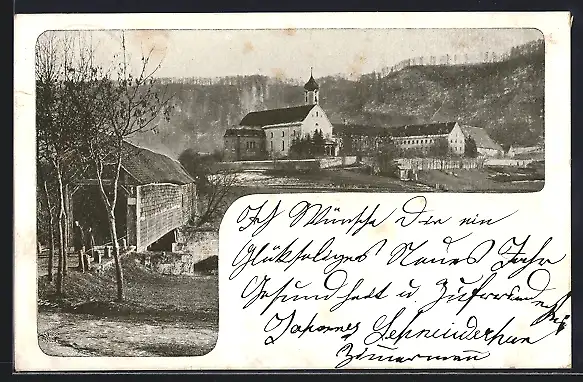 Ich Wünsche Dir ein
Glükseliges Neues Jahr
Gesundheit u Zufrieden
heit
Schneider
Zimermen